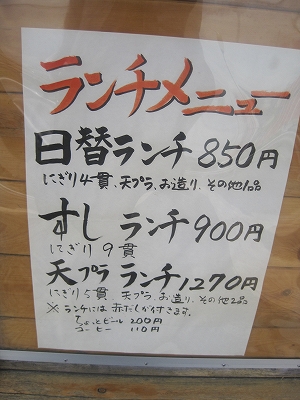 ランチメニュー
日替ランチ 850円
にぎり4貫、天プラ、お造り、その他1品
すし ランチ 900円
にぎり 9貫
天プラ ランチ 1270円
にぎり5貫、天プラ、お造り、その他2品
※ランチには 赤だしが付きます。
ちょっとビール 200円
コーヒー 110円